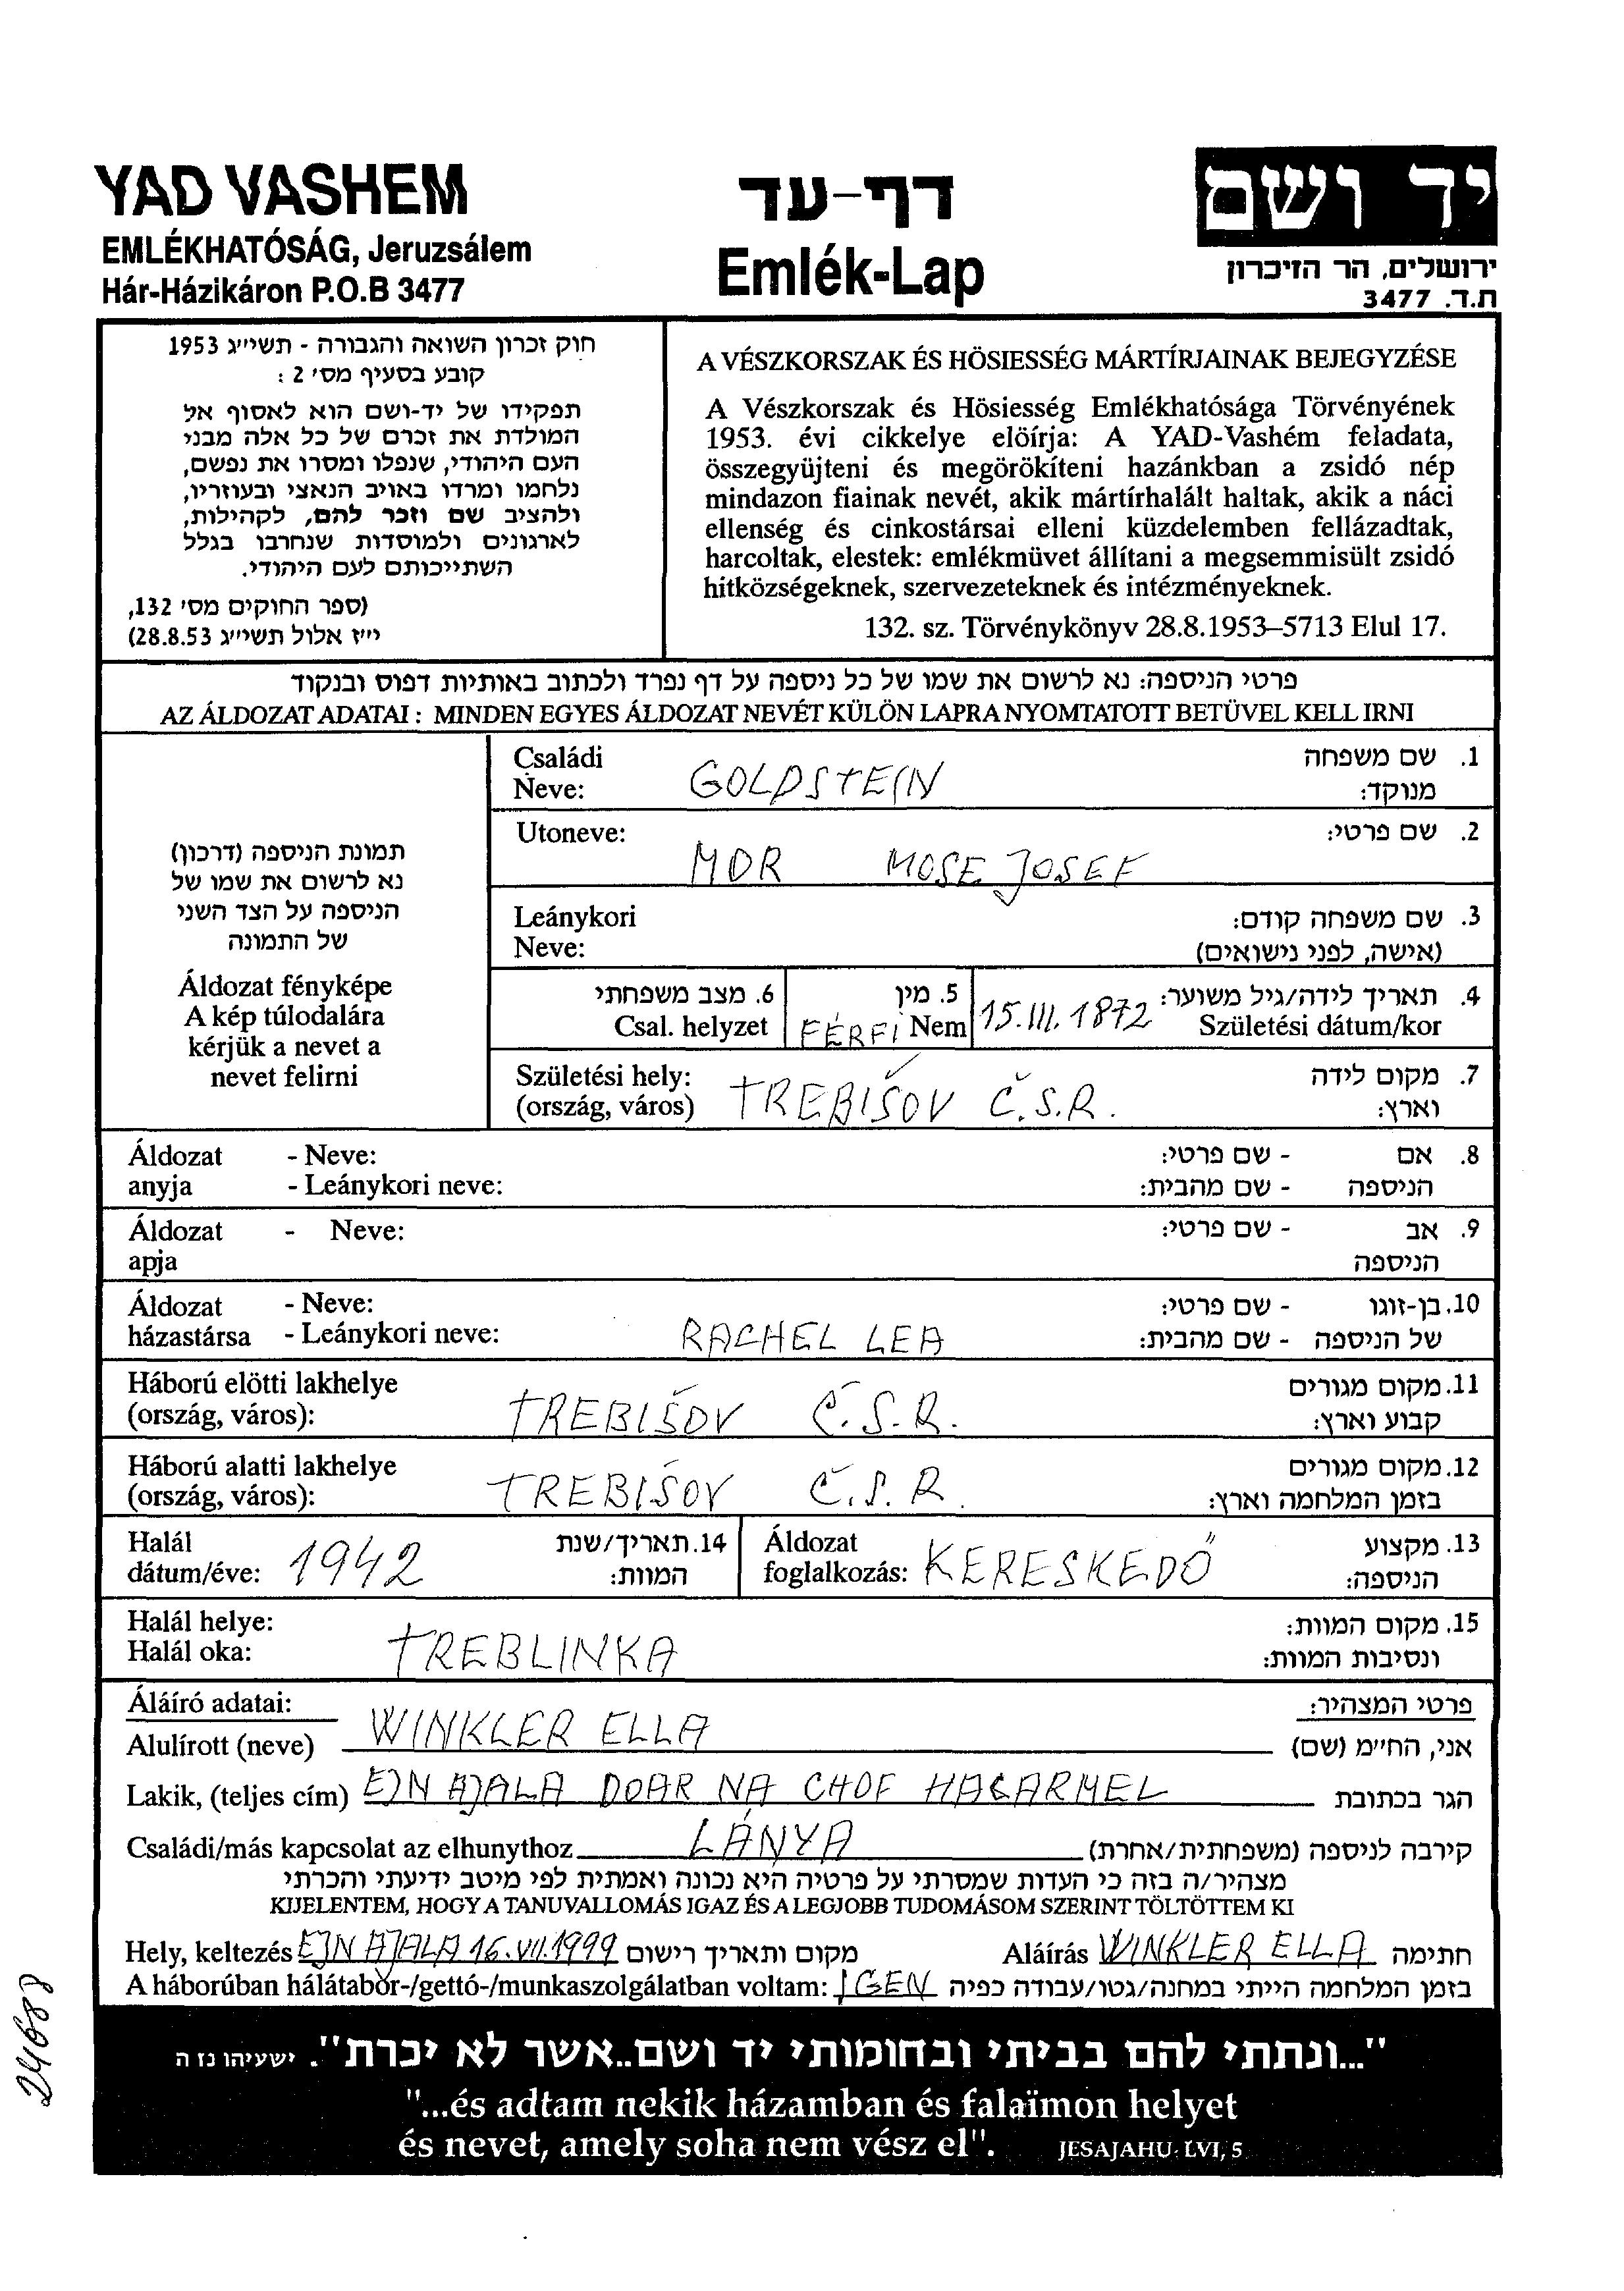 YAD VASHEM
EMLÉKHATÓSÁG, Jeruzsálem
Hár-Házikáron P.O.B 3477
דף-עד
Emlék-Lap
יד ושם
ירושלים, הר הזיכרון
ת.ד. 3477
חוק זכרון השואה והגבורה - תשי״ג 1953
קובע בסעיף מס׳ 2 :
תפקידו של יד-ושם הוא לאסוף אל
המולדת את זכרם של כל אלה מבני
העם היהודי, שנפלו ומסרו את נפשם,
נלחמו ומרדו באויב הנאצי ובעוזריו,
ולהציב שם וזכר להם, לקהילות,
לארגונים ולמוסדות שנחרבו בגלל
השתייכותם לעם היהודי.
(ספר החוקים מס׳ 132,
י״ז אלול תשי״ג 28.8.53)
A VÉSZKORSZAK ÉS HÖSIESSÉG MÁRTÍRJAINAK BEJEGYZÉSE
A Vészkorszak és Hösiesség Emlékhatósága Törvényének
1953. évi cikkelye elöírja: A YAD-Vashém feladata,
összegyüjteni és megörökíteni hazánkban a zsidó nép
mindazon fiainak nevét, akik mártírhalált haltak, akik a náci
ellenség és cinkostársai elleni küzdelemben fellázadtak,
harcoltak, elestek: emlékmüvet állítani a megsemmisült zsidó
hitközségeknek, szervezeteknek és intézményeknek.
132. sz. Törvénykönyv 28.8.1953–5713 Elul 17.
פרטי הניספה: נא לרשום את שמו של כל ניספה על דף נפרד ולכתוב באותיות דפוס ובנקוד
AZ ÁLDOZAT ADATAI : MINDEN EGYES ÁLDOZAT NEVÉT KÜLÖN LAPRA NYOMTATOTT BETÜVEL KELL IRNI
תמונת הניספה (דרכון)
נא לרשום את שמו של
הניספה על הצד השני
של התמונה
Áldozat fényképe
A kép túlodalára
kérjük a nevet a
nevet felirni
Családi
Neve: GOLDSTEIN
1. שם משפחה
מנוקד:
Utoneve: MOR MOSE JOSEF
2. שם פרטי:
Leánykori
Neve:
3. שם משפחה קודם:
(אישה, לפני נישואים)
6. מצב משפחתי
Csal. helyzet
5. מין
FÉRFI Nem
4. תאריך לידה/גיל משוער:
15.III.1872 Születési dátum/kor
Születési hely:
(ország, város) TREBIŠOV Č.S.R.
7. מקום לידה
וארץ:
Áldozat - Neve:
anyja - Leánykori neve:
8. אם - שם פרטי:
הניספה - שם מהבית:
Áldozat - Neve:
apja
9. אב - שם פרטי:
הניספה
Áldozat - Neve:
házastársa - Leánykori neve: RACHEL LEA
10. בן-זוגו - שם פרטי:
של הניספה - שם מהבית:
Háború elötti lakhelye
(ország, város): TREBIŠOV Č.S.R.
11. מקום מגורים
קבוע וארץ:
Háború alatti lakhelye
(ország, város): TREBIŠOV Č.S.R.
12. מקום מגורים
בזמן המלחמה וארץ:
Halál
dátum/éve: 1942
14. תאריך/שנת
המוות:
Áldozat
foglalkozás: KERESKEDŐ
13. מקצוע
הניספה:
Halál helye:
Halál oka: TREBLINKA
15. מקום המוות:
ונסיבות המוות:
Áláíró adatai:
פרטי המצהיר:
Alulírott (neve) WINKLER ELLA אני, הח״מ (שם)
Lakik, (teljes cím) EJN AJALA DOAR NA CHOF HACARMEL הגר בכתובת
Családi/más kapcsolat az elhunythoz LÁNYA קירבה לניספה (משפחתית/אחרת)
מצהיר/ה בזה כי העדות שמסרתי על פרטיה היא נכונה ואמתית לפי מיטב ידיעתי והכרתי
KIJELENTEM, HOGY A TANUVALLOMÁS IGAZ ÉS A LEGJOBB TUDOMÁSOM SZERINT TÖLTÖTTEM KI
Hely, keltezés EJN AJALA 16.VII.1999 מקום ותאריך רישום Aláírás WINKLER ELLA חתימה
A háborúban hálátabor-/gettó-/munkaszolgálatban voltam: IGEN בזמן המלחמה הייתי במחנה/גטו/עבודה כפיה
"...ונתתי להם בביתי ובחומותי יד ושם..אשר לא יכרת". ישעיהו נז ה
"...és adtam nekik házamban és falaïmon helyet
és nevet, amely soha nem vész el". JESAJAHU: LVI, 5
24688